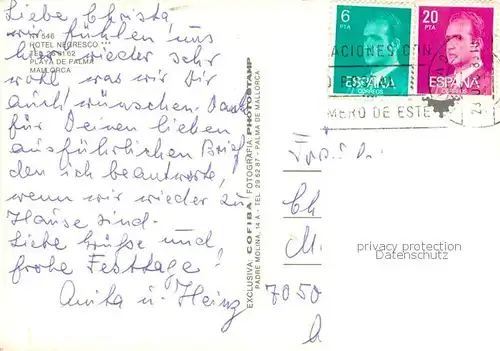 Liebe Christa,
wir fühlen uns
hier wieder sehr
wohl was wir Dir
auch wünschen. Dank
für Deinen lieben
ausführlichen Brief
den ich beantworte,
wenn wir wieder zu
Hause sind.
Liebe Grüße und
frohe Festtage!
Anita u. Heinz
Nº 546
HOTEL NEGRESCO ***
PLAYA DE PALMA
MALLORCA
EXCLUSIVA: COFIBA / FOTOGRAFIA: PHOTOSTAMP
PADRE MOLINA, 14 A - TEL 29 52 87 - PALMA DE MALLORCA
6
PTA
ESPAÑA
CORREOS
20
PTA
ESPAÑA
CORREOS
ACIONES CON
MERO DE ESTE
Ch
M
privacy protection
Datenschutz
7050